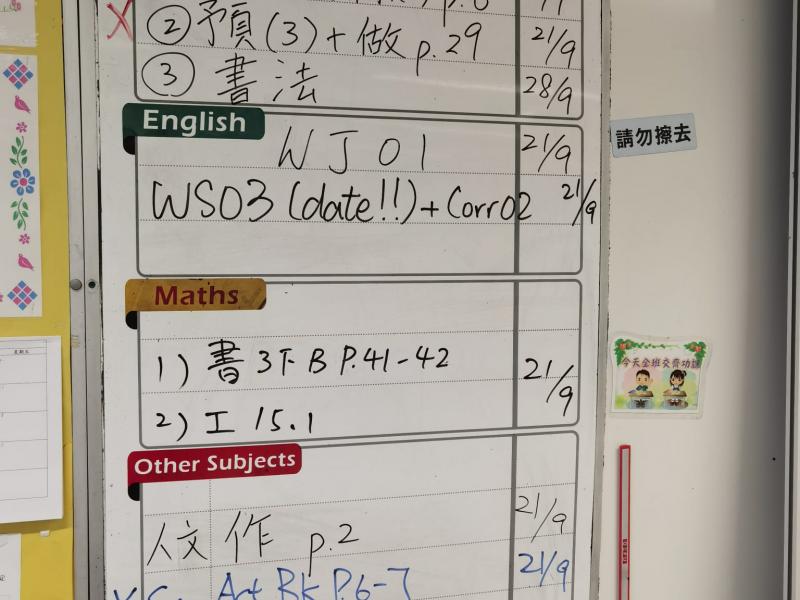 ② 預(3)+做 p.29 21/9
③ 書法 28/9
English
WJ01 21/9
WS03 (date!!)+Corr02 21/9
請勿擦去
Maths
1) 書 3下B P.41-42 21/9
今天全班交齊功課
2) 工 15.1
Other Subjects
人文 作 p.2 21/9
Art Bk P.6-7 21/9